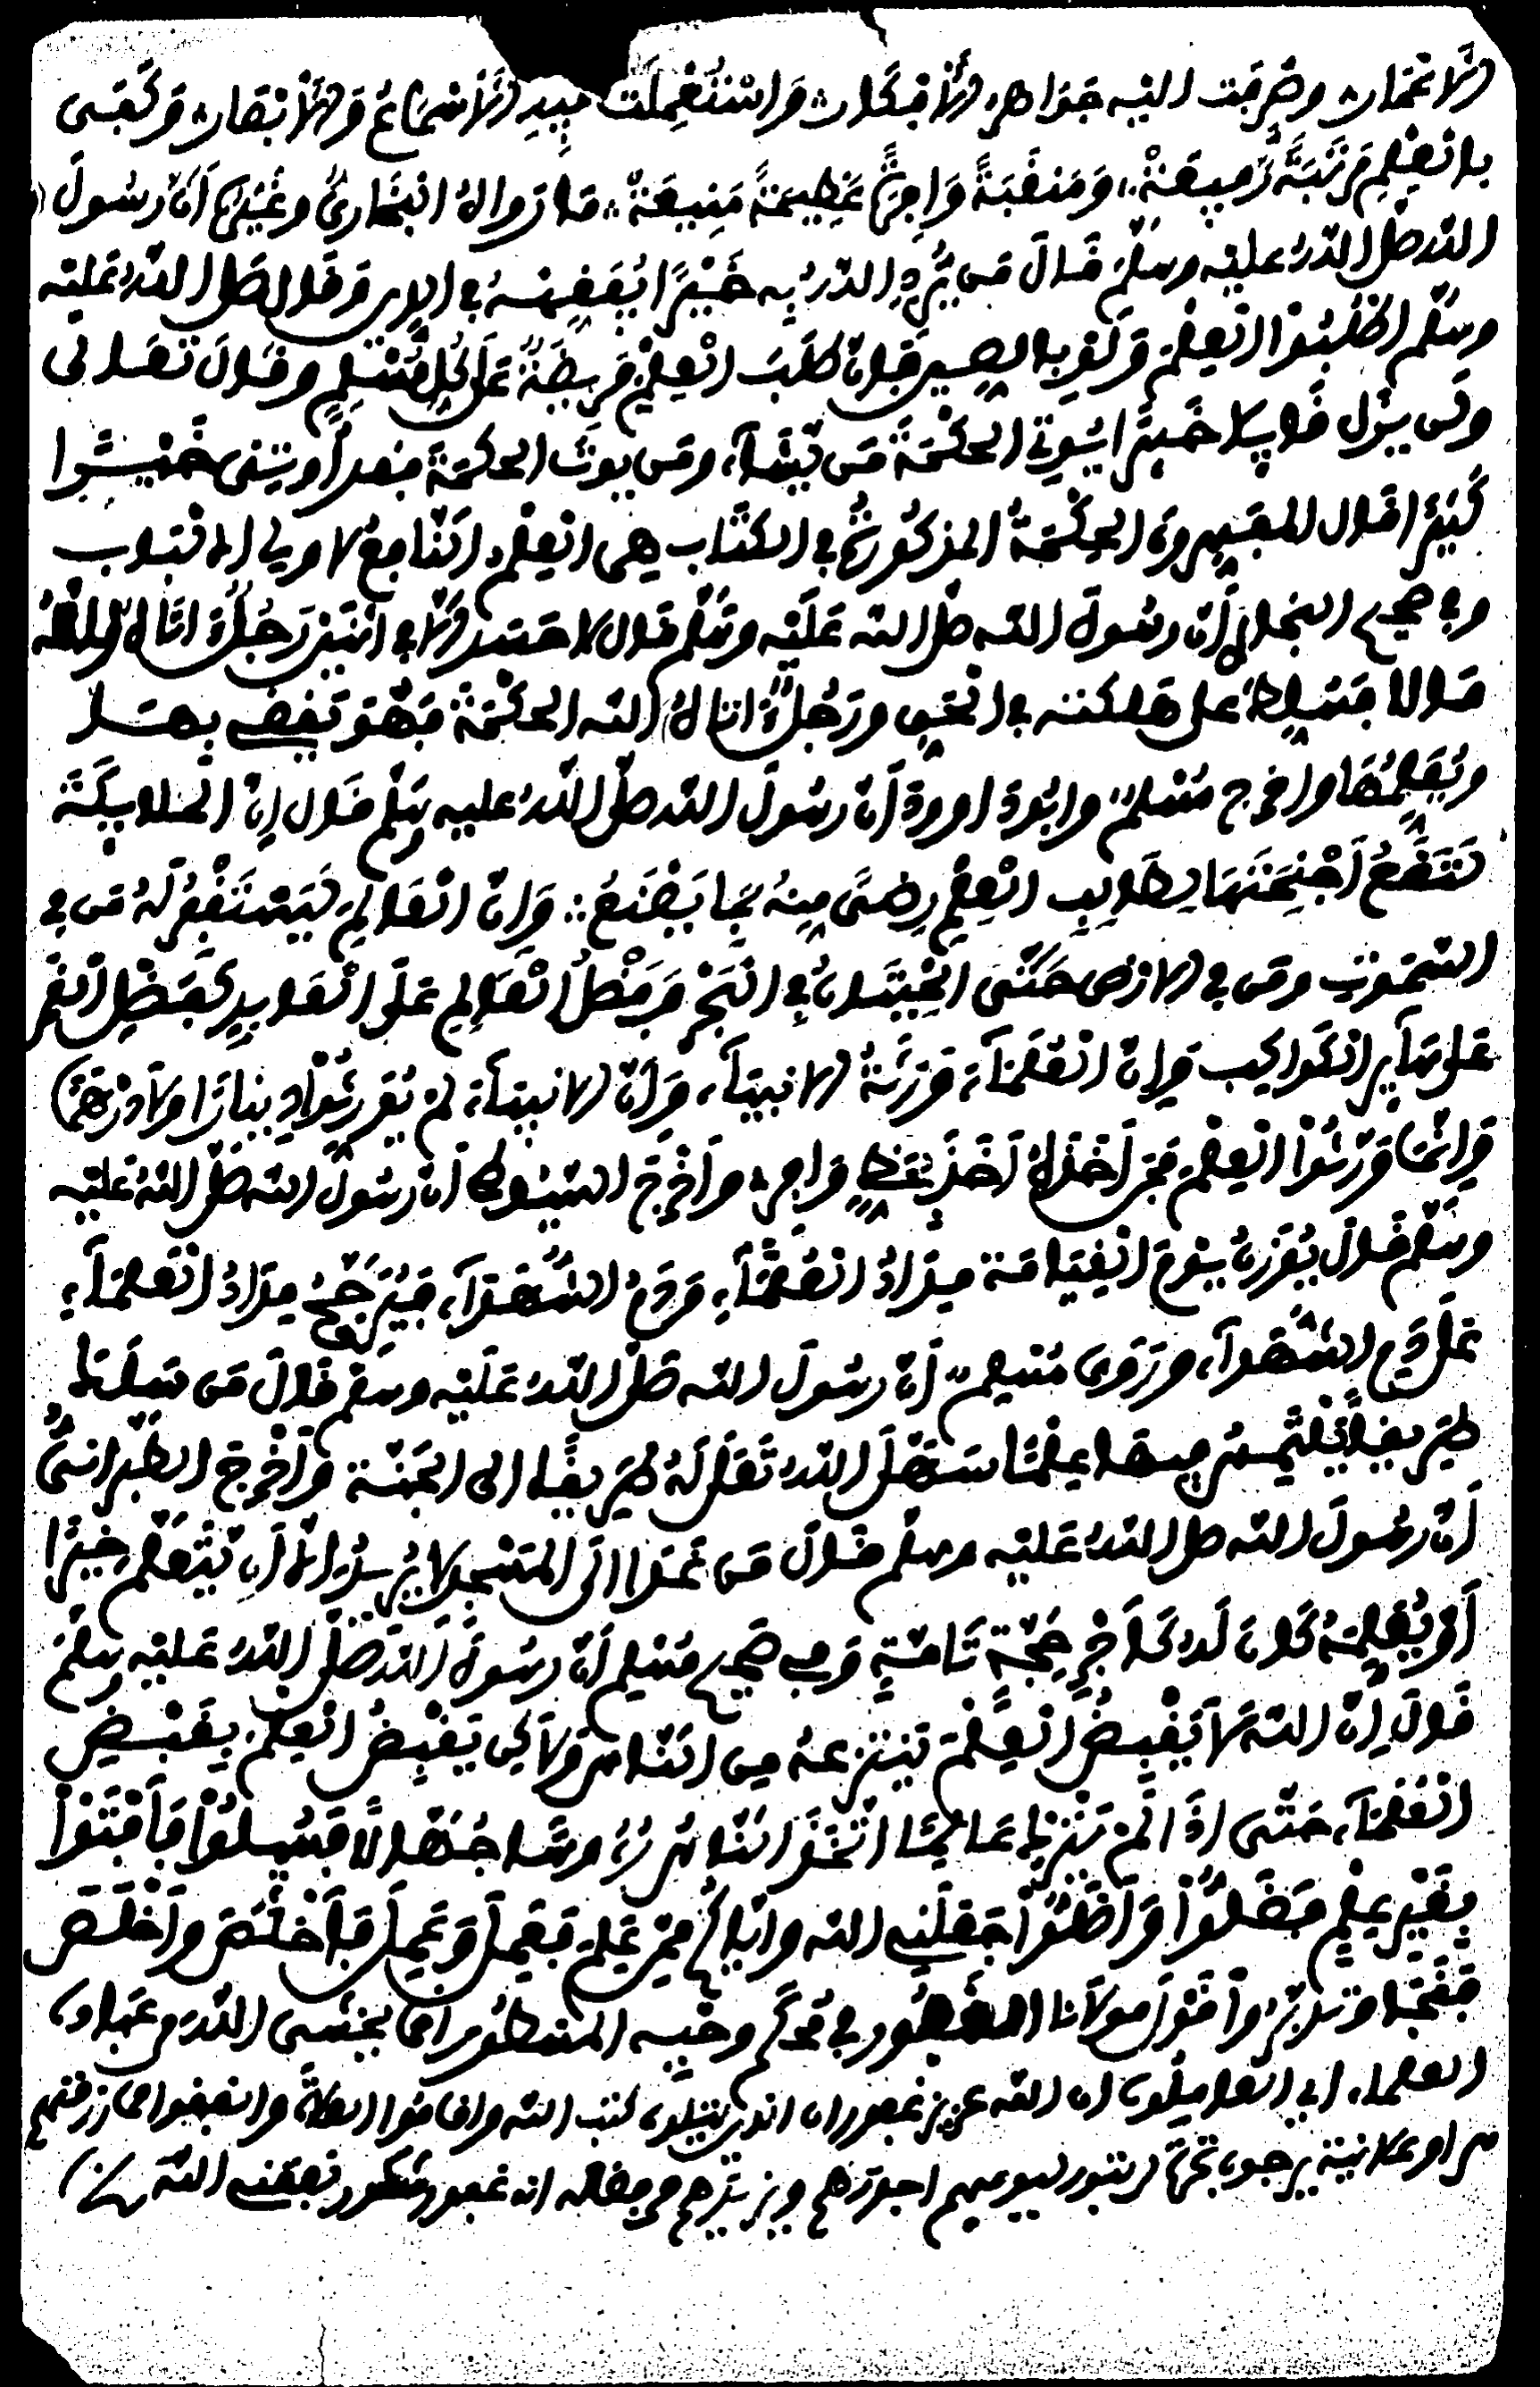 الاعمار وصرفت اليه جواهر الأفكار واستعملت فيه الأسماع والأبصار وكفى
بالعلم مرتبة رفيعة ومنقبة وافرة عظيمة منيعة ما رواه البخاري وغيره أن رسول
الله صلى الله عليه وسلم قال من يرد الله به خيرا يفقهه في الدين وقال صلى الله عليه
وسلم اطلبوا العلم ولو بالصين فإن طلب العلم فريضة على كل مسلم وقال تعالى
ومن يزل قايلا خبيرا يوتي الحكمة من يشاء ومن يوت الحكمة فقد اوتي خيرا
كثيرا قال المفسرون الحكمة المذكورة في الكتاب هي العلم النافع لاولي الالباب
وفي صحيح البخاري أن رسول الله صلى الله عليه وسلم قال لا حسد الا في اثنين رجل اتاه الله
مالا فسلطه على هلكته في الحق ورجل اتاه الله الحكمة فهو يقضي بها
ويعلمها واخرج مسلم وابو داوود أن رسول الله صلى الله عليه وسلم قال إن الملايكة
تضع أجنحتها لطالب العلم رضى منه بما يصنع وإن العالم ليستغفر له من في
السموت ومن في الارض حتى الحيتان في البحر وفضل العالم على العابد كفضل القمر
على ساير الكواكب وإن العلماء ورثة الانبياء وإن الانبياء لم يورثوا دينارا ولا درهما
وإنما ورثوا العلم فمن أخذه أخذ بحظ وافر وأخرج السيوطي أن رسول الله صلى الله عليه
وسلم قال يوزن يوم القيامة مداد العلماء ودم الشهداء فيرجح مداد العلماء
على دم الشهداء وروى مسلم أن رسول الله صلى الله عليه وسلم قال من سلك
طريقا يلتمس فيها علما سهل الله تعلى له طريقا الى الجنة وأخرج الطبراني
أن رسول الله صلى الله عليه وسلم قال من غدا الى المسجد لا يريد إلا أن يتعلم خيرا
أو يعلمه كان له كأجر حجة تامة وفي صحيح مسلم أن رسول الله صلى الله عليه وسلم
قال إن الله لا يقبض العلم ينتزعه من الناس ولاكن يقبض العلم بقبض
العلماء حتى اذا لم يترك عالما اتخذ الناس رؤوسا جهالا فسيلوا فأفتوا
بغير علم فضلوا وأضلوا جعلني الله واياكم ممن علم فعمل وعمل فأخلص وأخلص
فنجا وتدبر قول مولانا الغفور في محكم وحيه المسطور انما يخشى الله من عباده
العلماء اي العاملون ان الله عزيز غفور ان الذين يتلون كتب الله واقاموا الصلاة وانفقوا مما رزقنهم
سرا وعلانية يرجون تجرة لن تبور ليوفيهم اجورهم ويزيدهم من فضله انه غفور شكور نفعني الله